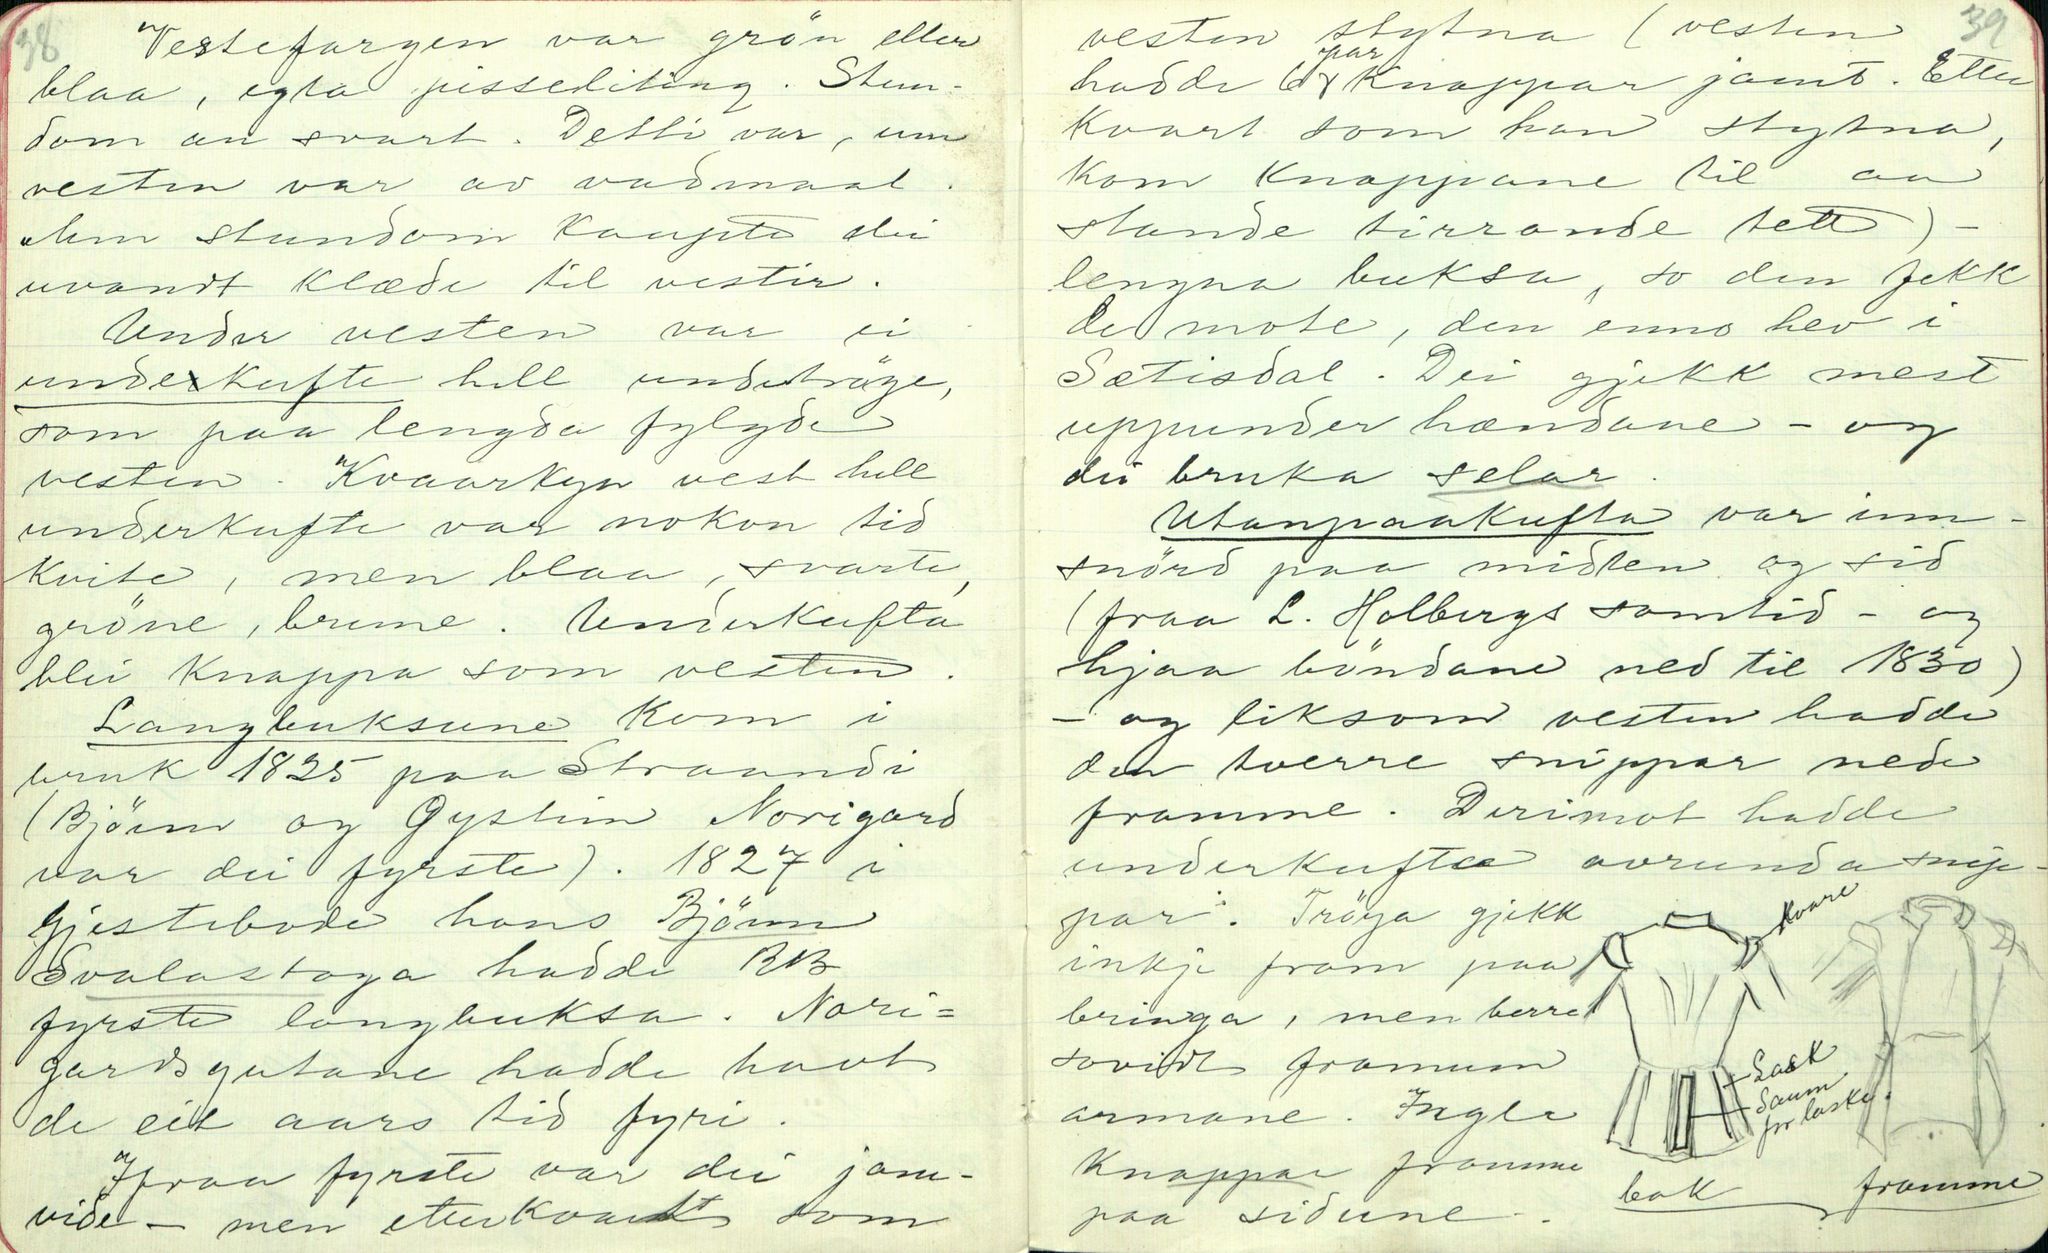 38
Vestefargen var grön eller
blaa, egta pissediting. Stun-
dom au svart. Detti var, um
vesten var av vadmaal.
Um stundom kaupte dei
uvandt klæde til vestir.
Under vesten var ei
underkufte hell undetröge,
som paa lengda fylgde
vesten. Kvaarkyn vest hell
underkufte var nokon tid
kvite, men blaa, svarte,
gröne, brune. Underkufta
blei knappa som vesten.
Langbuksune kom i
bruk 1825 paa Straandi
(Björn og Øystein Norigard
var dei fyrste). 1827 i
gjestebode hans Björn
Svalastoga hadde RB
fyrste langbuksa. Nori=
gardsgutane hadde havt
de eit aars tid fyri.
Ifraa fyrste var dei jam-
vide - men etterkvart som
39
vesten stytna (vesten
hadde 6 par knappar jamt. Etter
kvart som han stytna,
kom knappane til aa
stande tirrande tett) -
lengna buksa, so den fekk
de mote, den enno hev i
Sætisdal. Dei gjekk mest
uppunder hændane - og
dei bruka selar.
Utanpaakufta var inn-
snörd paa midten og sid
(fraa L. Holbergs samtid - og
hjaa böndane ned til 1830)
- og liksom vesten hadde
den tverre snippar nede
framme. Derimot hadde
underkufta avrunda snip-
par. Tröya gjekk
inkje fram paa
bringa, men berre
sovidt framum
armane. Ingle
knappar framme
paa sidune.
Kvare
Lask
Saum
for laske.
bak
framme